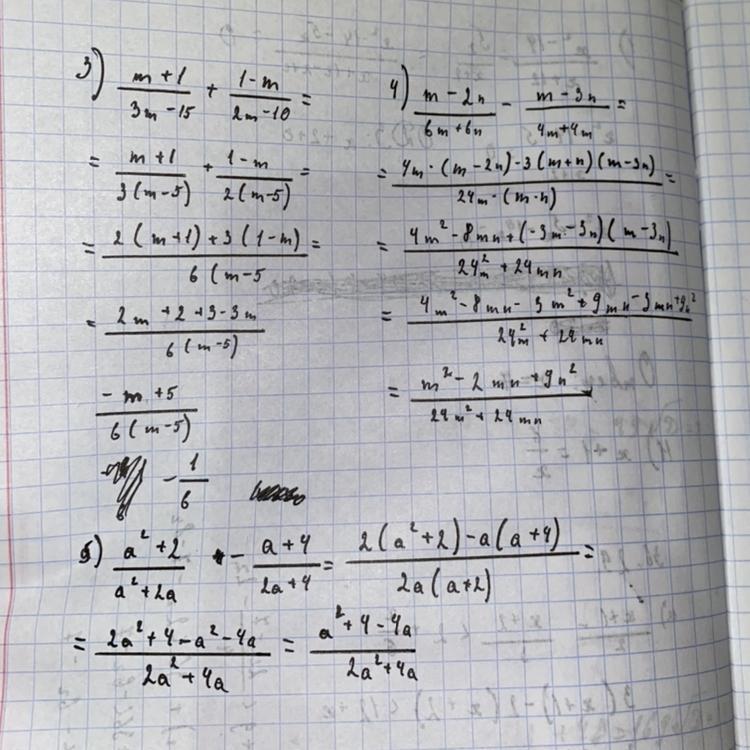 3) (m+1)/(3m-15) + (1-m)/(2m-10) =
= (m+1)/(3(m-5)) + (1-m)/(2(m-5)) =
= (2(m+1)+3(1-m))/(6(m-5 =
= (2m+2+3-3m)/(6(m-5))
(-m+5)/(6(m-5))
-1/6
4) (m-2n)/(6m+6n) - (m-3n)/(4m+4m) =
= (4m·(m-2n)-3(m+n)(m-3n))/(24m·(m·n)) =
= (4m²-8mn+(-3m-3n)(m-3n))/(24m²+24mn)
= (4m²-8mn-3m²+9mn-3mn+9n²)/(24m²+24mn)
= (m²-2mn+9n²)/(24m²+24mn)
5) (a²+2)/(a²+2a) - (a+4)/(2a+4) = (2(a²+2)-a(a+4))/(2a(a+2)) =
= (2a²+4-a²-4a)/(2a²+4a) = (a²+4-4a)/(2a²+4a)